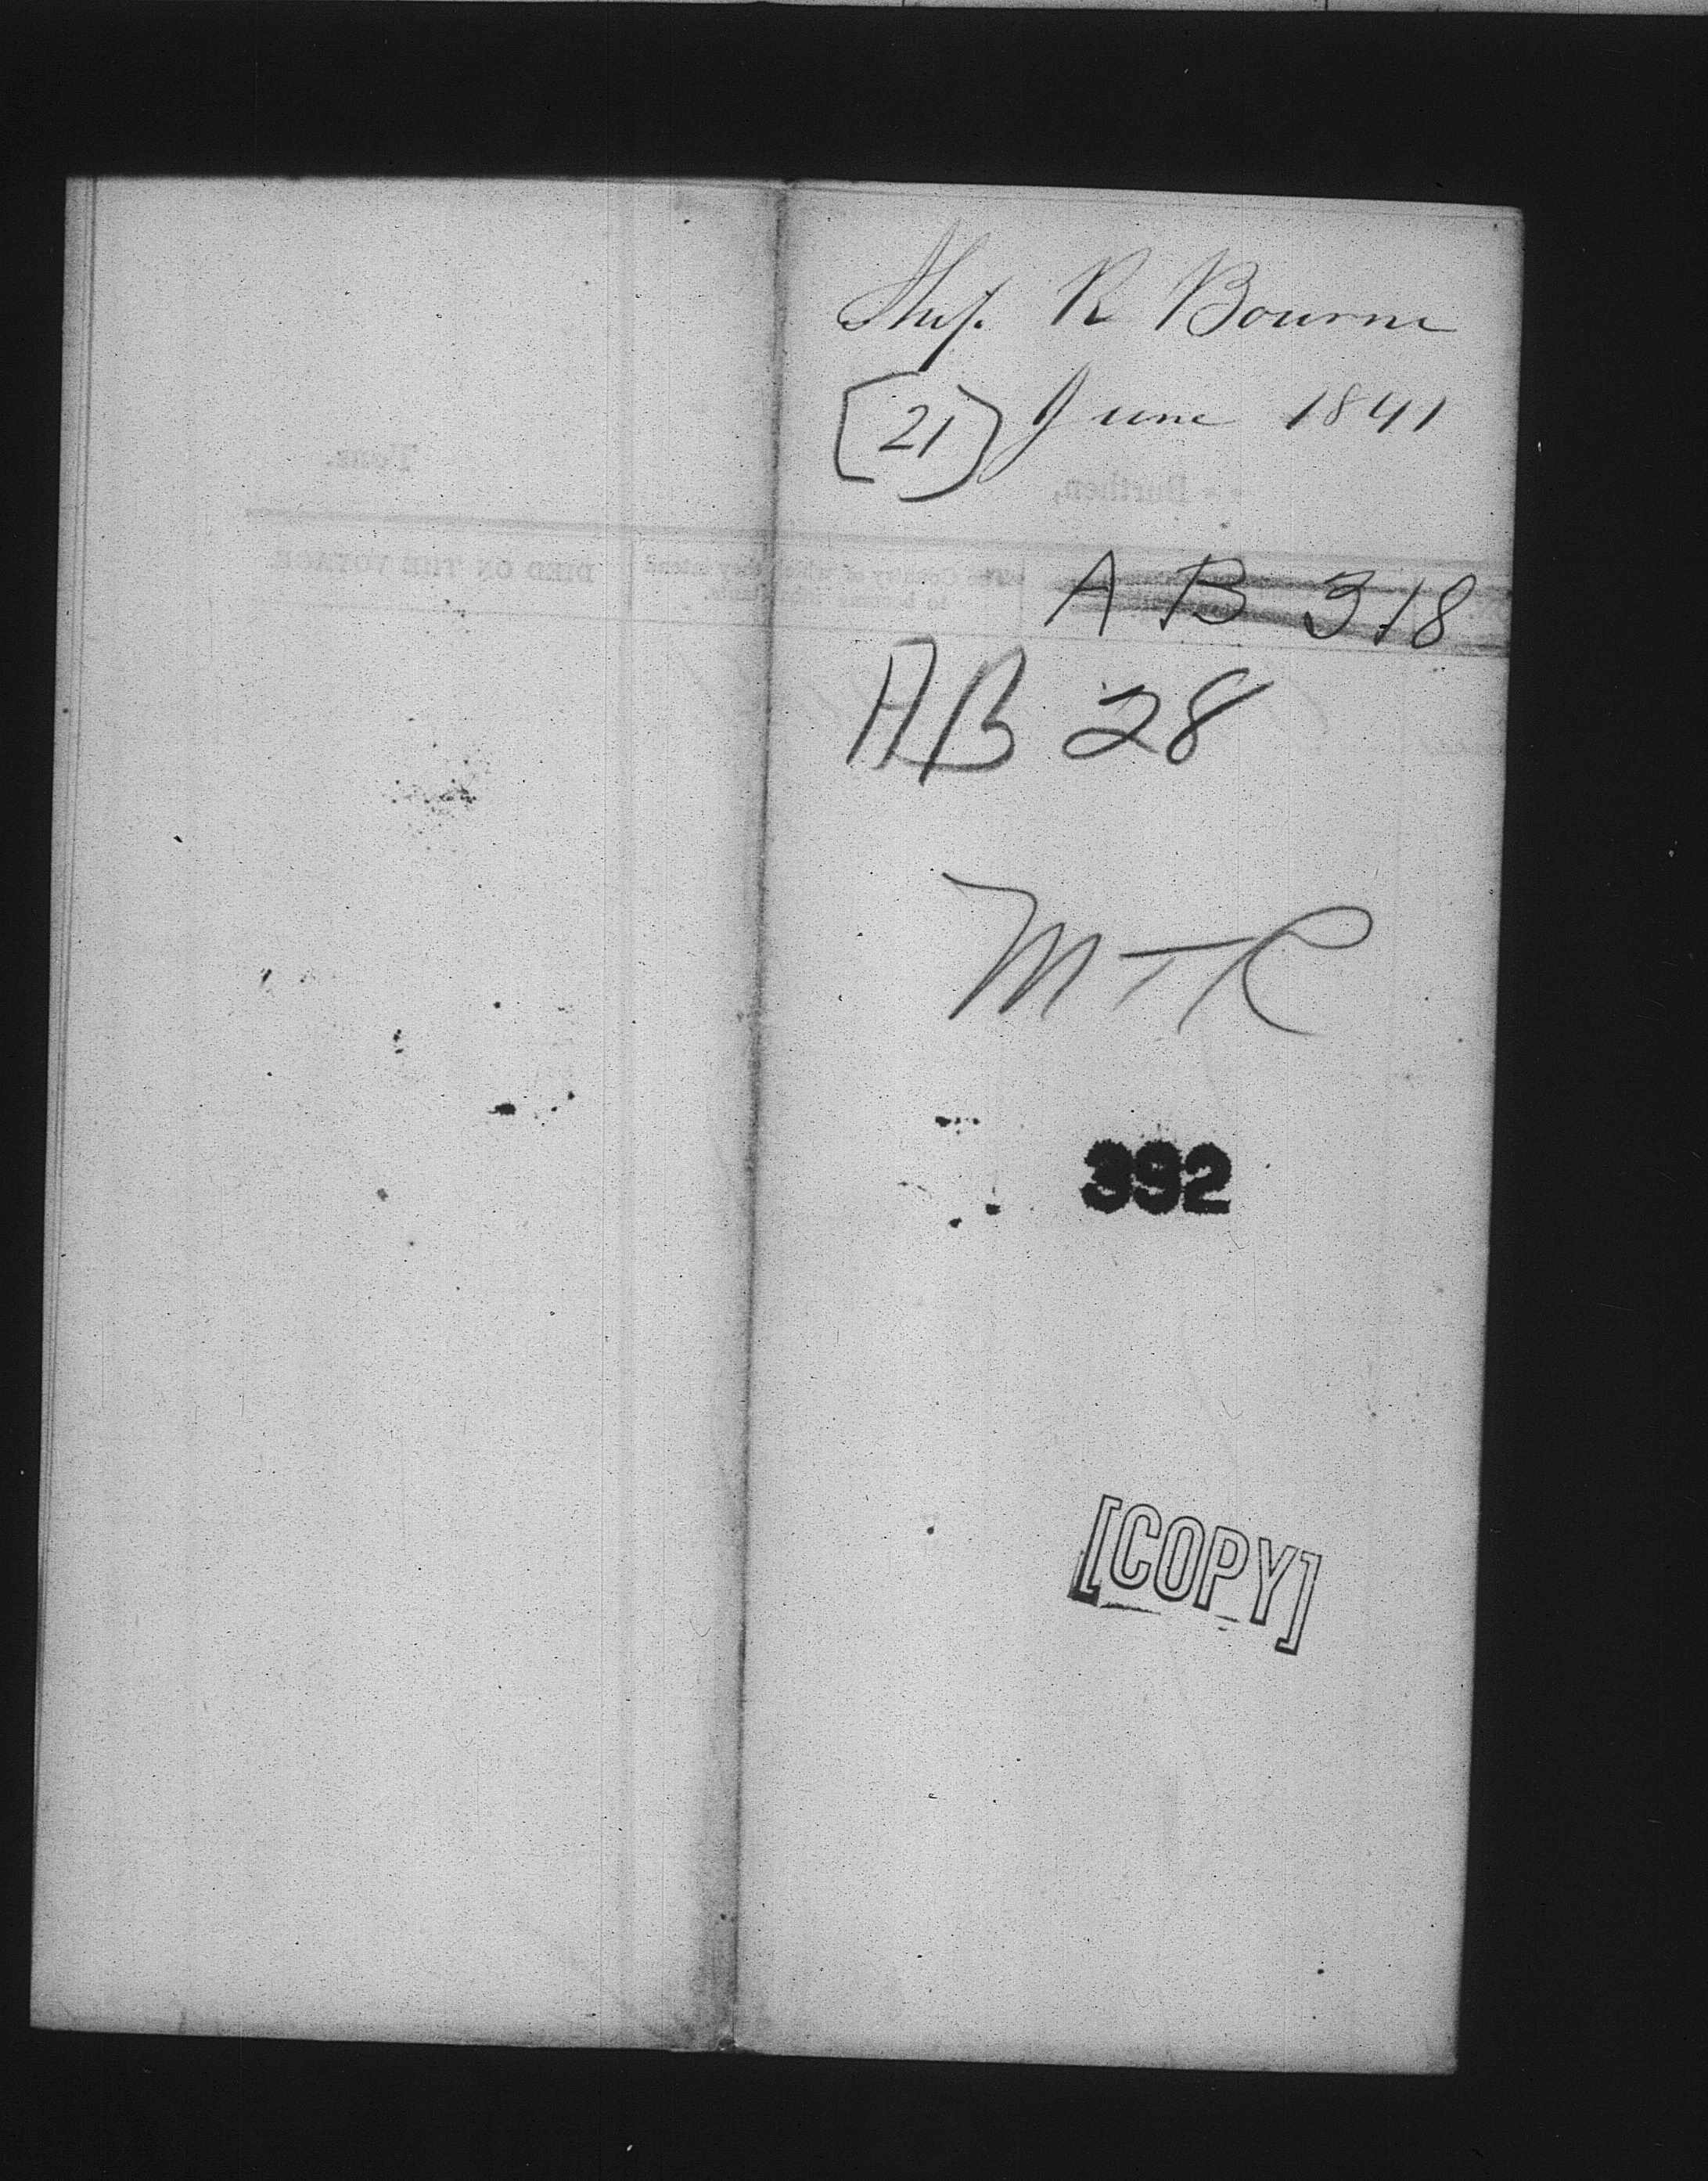 Ship R Bourne
[21] June 1841
Tons.
Burthen,
DIED ON THE VOYAGE
The Country of which they intend
to become inhabitants.
A B 318
AB 28
MTR
392
[COPY]